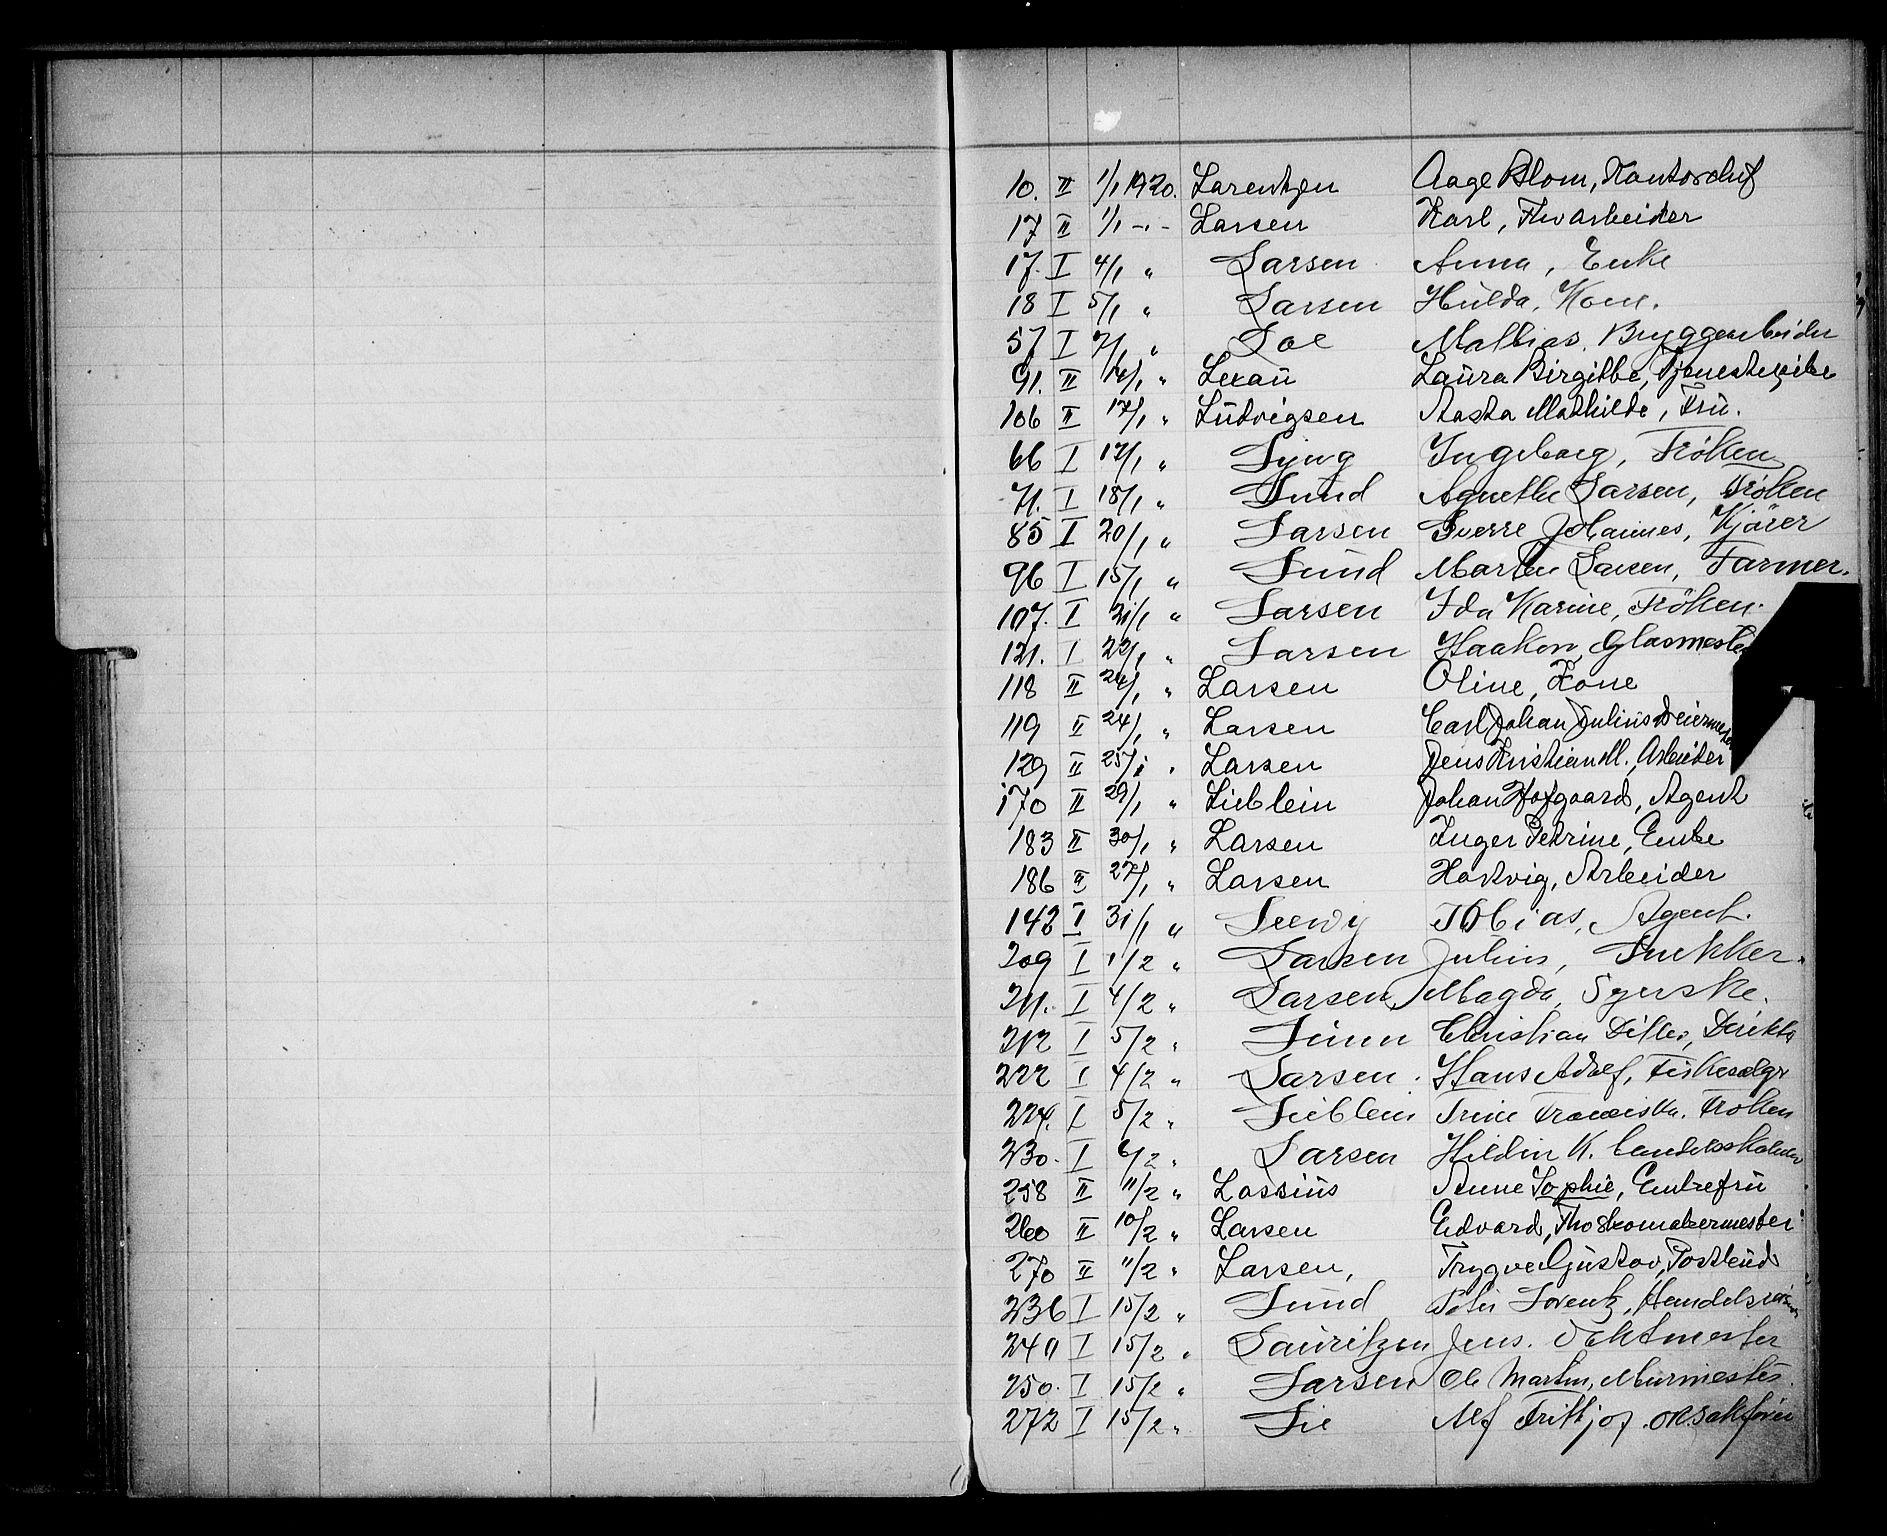 10. II 1/1 1920. Larentzen Aage Blom, Kontorchef
17 II 1/1 -"- Larsen Karl, Thvarbeider
17. I 4/1 " Larsen Anna, Enke
18 I 5/1 " Larsen Hulda, Kone.
57 I 7/1 " Loe Mathias, Bryggearbeider
91. II 14/1 " Lexau Laura Birgithe, Tjenestepike
106 II 17/1 " Ludvigsen Aasta Mathilde, Fru.
66 I 17/1 " Lyng Ingeborg, Fröken
71. I 18/1 " Lund Agnethe Larsen, Fröken
85 I 20/1 " Larsen Sverre Johannes, Kjörer
96 I 15/1 " Lund Martin Larsen, Farmer.
107. I 21/1 " Larsen Ida Karine, Fröken.
121. I 22/1 " Larsen Haakon, Glasmeste
118 II 24/1 " Larsen Oline, Kone
119 II 24/1 " Larsen Carl Johan Julius
129 II 25/1 " Larsen Jens Kristian M., Arbeider
170 II 29/1 " Lieblein Johan Hofgaard, Agent
183 II 30/1 " Larsen Inger Petrine, Enke
186 II 27/1 " Larsen Hartvig, Arbeider
142 I 31/1 " Leewy Tobias, Agent.
209 I 1/2 " Larsen Julius, Snekker.
211. I 4/2 " Larsen, Magda, Syerske.
212 I 5/2 " Linn Christian Ditlev, Direktø
222 I 4/2 " Larsen. Hans Adolf, Fiskesælgr
224. I 5/2 " Lieblein Trine Franciska. Fröken
230. I 6/2 " Larsen Hildin K.
258 II 11/2 " Lossius Anne Sophie, Enkefru
260 II 10/2 " Larsen Edvard, Skomakermester
270 II 11/2 " Larsen, Trygve Gustav, Postbud
236 I 15/2 " Lund Peter Lorentz,
240 I 15/2 " Lauritzen Jens. Vaktmester
250. I 15/2 " Larsen Ole Martin, Murmester.
272 I 15/2 " Lie Alf Fritjof.